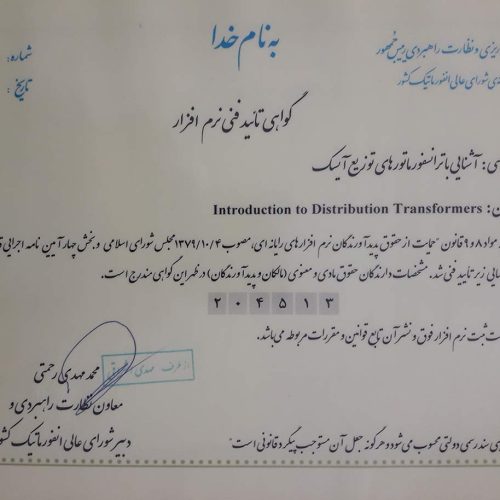 به نام خدا
ریزی و نظارت راهبردی رییس جمهور
شورای عالی انفورماتیک کشور
شماره:
تاریخ:
گواهی تائید فنی نرم افزار
آشنایی با ترانسفورماتورهای توزیع آیسک
Introduction to Distribution Transformers
مواد ۸ و ۹ قانون حمایت از حقوق پدیدآورندگان نرم افزارهای رایانه ای، مصوب ۱۳۷۹/۱۰/۴ مجلس شورای اسلامی و بخش چهار آیین نامه اجرایی
زیر تایید فنی شد. مشخصات دارندگان حقوق مادی و معنوی (مالکان و پدیدآورندگان) در ظهر این گواهی مندرج است.
۲۰۴۵۱۳
ثبت نرم افزار فوق و نشر آن تابع قوانین و مقررات مربوطه می‌باشد.
محمد مهدی رحمتی
از طرف مهدی
معاون نظارت راهبردی و
دبیر شورای عالی انفورماتیک کشور
سندرسمی دولتی محسوب می‌شود و هرگونه جعل آن مستوجب پیگرد قانونی است